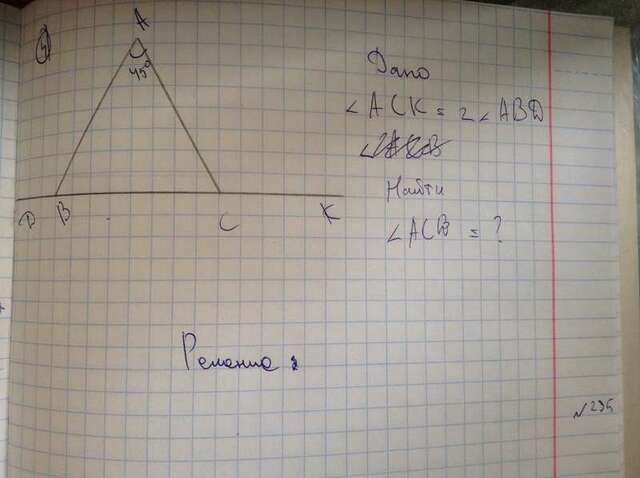 4)
A
45°
D B C K
Дано
∠ACK = 2∠ABD
Найти
∠ACB = ?
Решение:
№235